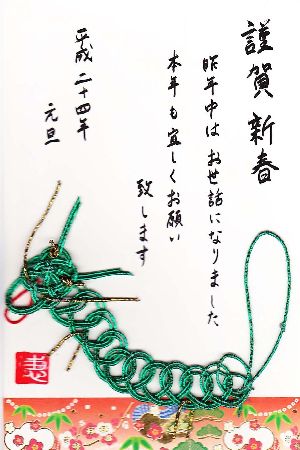 謹賀新春
昨年中はお世話になりました
本年も宜しくお願い
致します
平成二十四年
元旦
恵